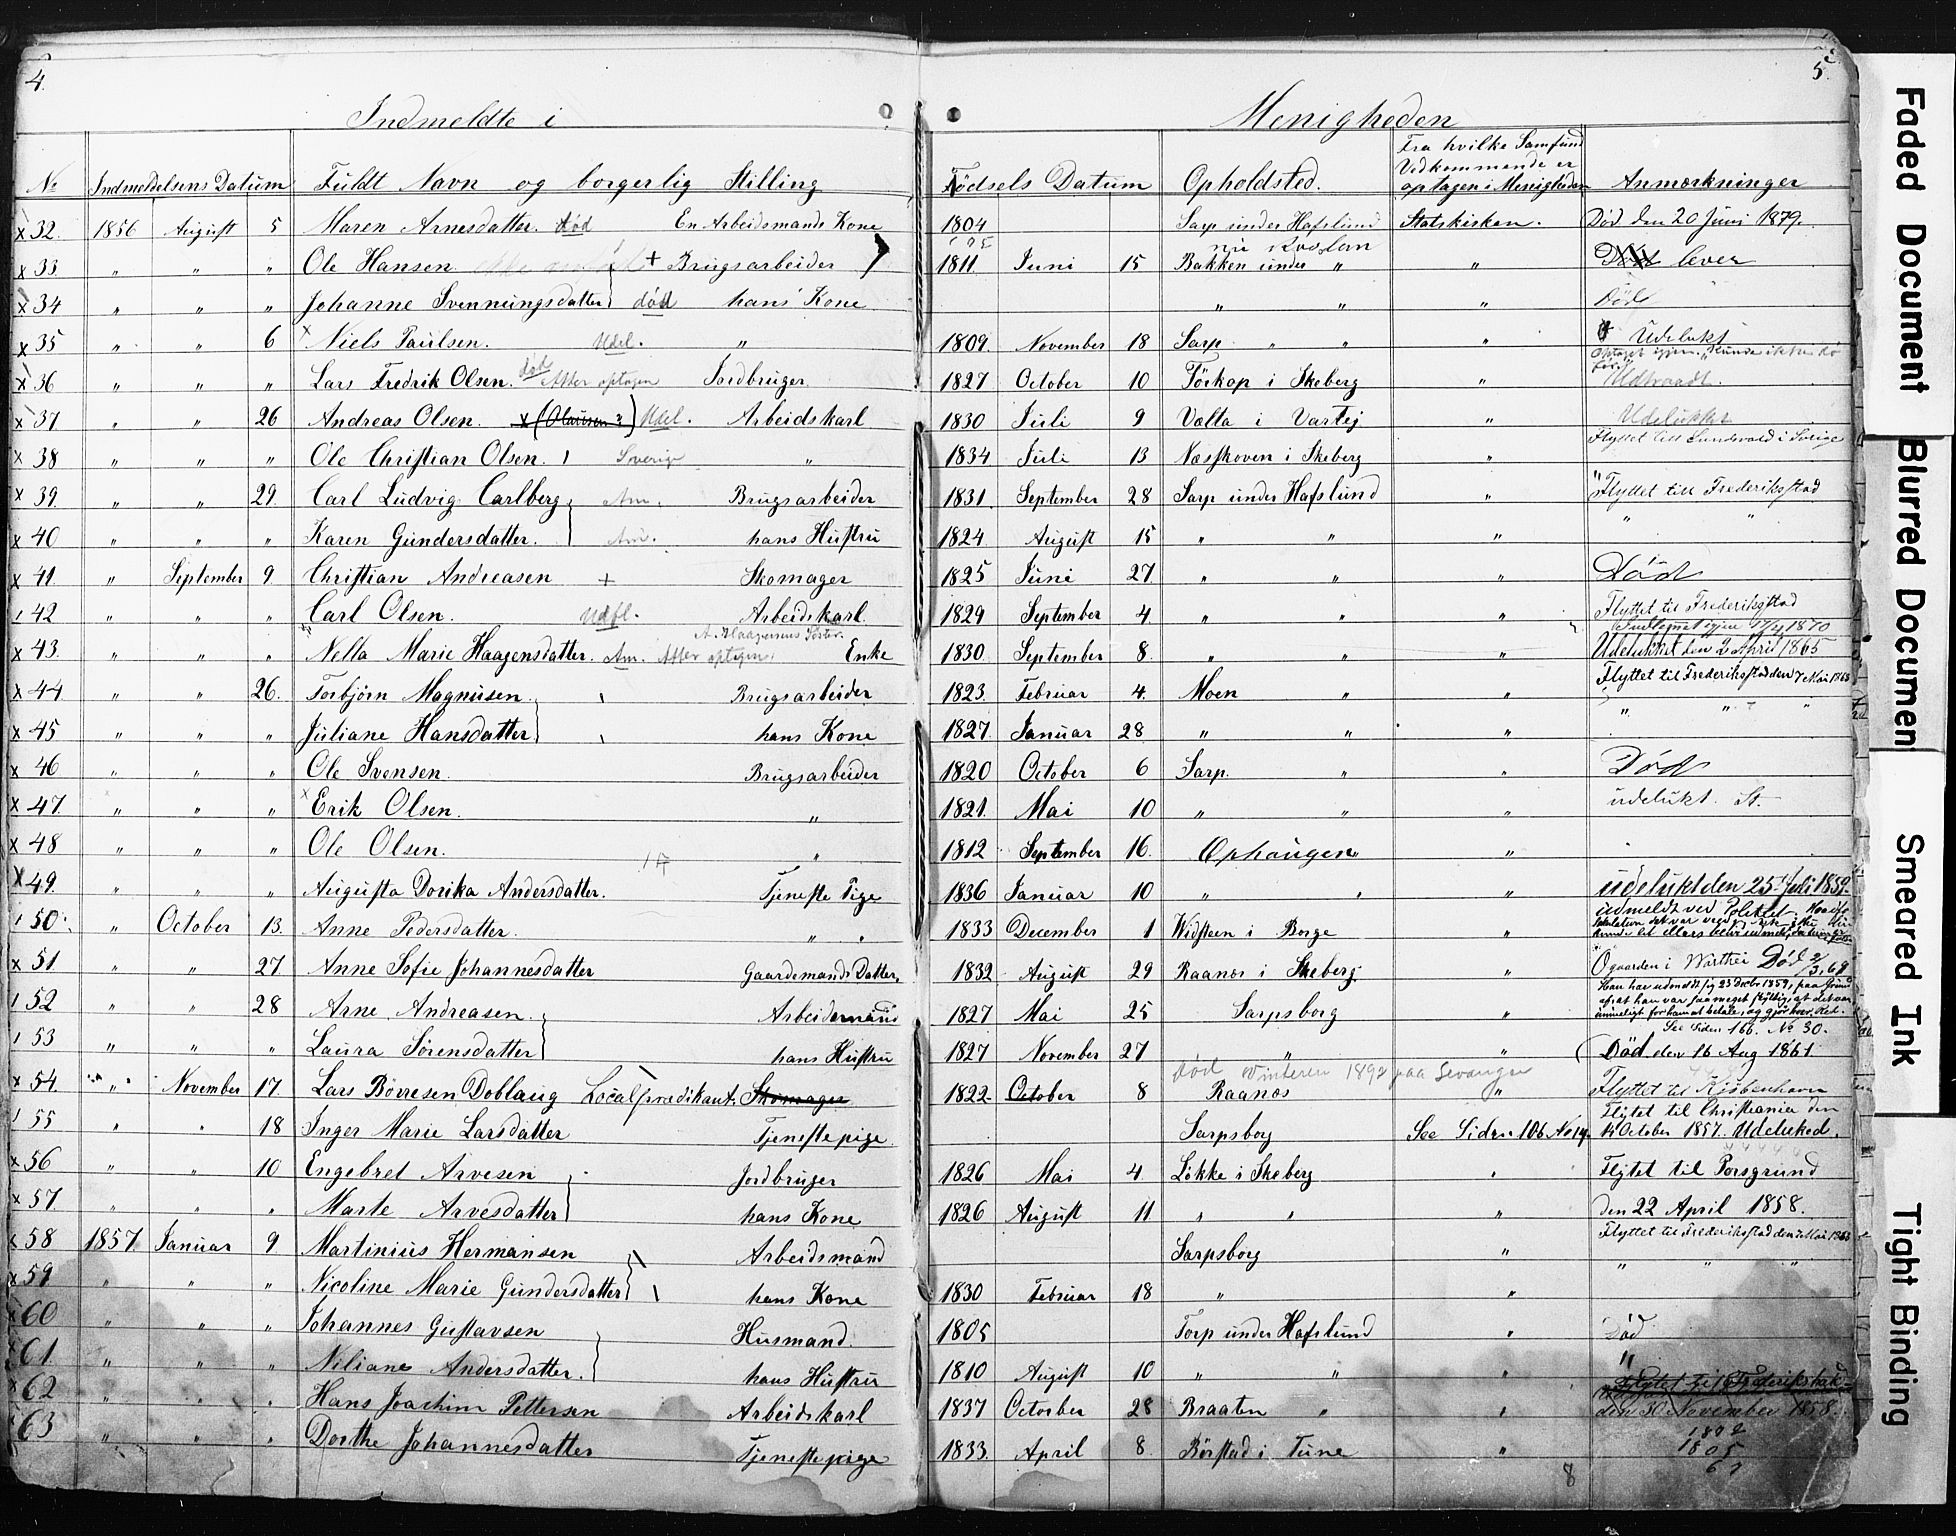 4.
Indmeldte i
Menigheden
5.
No Indmeldelsens Datum Fuldt Navn og borgerlig Stilling Fødsels Datum Opholdsted. Fra hvilke Samfund Vidkommende er optagen i Menigheden Anmærkninger
x 32. 1856 August 5 Maren Arnesdatter. død En Arbeidsmands Kone 1804 Sarp under Hafslund Statskirken. Død den 20 Juni 1879.
x 33 " " " Ole Hansen + Brugsarbeider 1811. Juni 15 Bakken under " " lever
x 34 " " " Johanne Svenningsdatter død hans Kone " " " Død
x 35 " " 6 x Niels Paulsen. Udel. " 1809. November 18 Sarp. " " " Udelukt
x 36 " " " Lars Fredrik Olsen. død Atter optagen Jordbruger 1827 October 10 Törkop i Skeberg " Udtraadt.
x 37. " " 26 Andreas Olsen. x (Olausen?) Udel. Arbeidskarl 1830 Juli 9 Vælta i Vartej " Udelukket
x 38 " " " Ole Christian Olsen. Sverige " 1834 Juli 13 Næsskoven i Skeberg " Flyttet till Sundsvald i Sverige
x 39. " " 29. Carl Ludvig Carlberg Am. Brugsarbeider 1831. September 28 Sarp under Hafslund " Flyttet till Frederiksstad
x 40 " " " Karen Gundersdatter. Am. hans Hustru 1824 August 15 " " " " "
x 41 " September 9 Christian Andreasen + Skomager 1825 Juni 27 " " " Død
42 " " " Carl Olsen. Udfl. Arbeidskarl. 1829 September 4. " " " Flyttet til Frederiksstad
x 43. " " " Nella Marie Haagensdatter. Am. Atter optagen Enke 1830 September 8. " " " Udelukket den 2 April 1865
x 44 " " 26. Torbjørn Magnusen. Brugsarbeider 1823. Februar 4. Moen " " Flyttet til Frederiksstad den 7 Mai 1863
x 45 " " " Juliane Hansdatter hans Kone 1827. Januar 28 " " " " " "
x 46 " " " Ole Svensen. Brugsarbeider 1820 October 6 Sarp. " " Død
x 47. " " " x Erik Olsen. " 1821. Mai 10 " " " udelukt. St.
x 48 " " " Ole Olsen. " 1812 September 16. Ophaugen " "
x 49. " " " Augusta Dorika Andersdatter. Tjeneste Pige 1836 Januar 10 " " " udelukt den 25 Juli 1859
50. " October 13. Anne Pedersdatter. " " 1833 December 1 Widsteen i Borge " udmeldt ved
x 51 " " 27. Anne Sofie Johannesdatter Gaardemands Datter. 1832 August 29 Raanæs i Skeberg. " Ogaarden i Warthei Død 2/3, 69
52 " " 28 Arne Andreasen. Arbeidsmand 1827 Mai 25 Sarpsborg Han har udmeldt sig 23 Decbr 1859, paa Grund
af at han var saa meget skyldig, at det var
umueligt for ham at betale, og gjør
See Siden 166. No 30.
53 " " " Laura Sörensdatter hans Hustru 1827 November 27 " " Död den 16 Aug 1861
død Winteren 1892 paa Levanger
x 54. " November 17. Lars Bövresen Doblaug Localprædikant. Skomager 1822 October 8 Raanæs " Flyttet til Kjöbenhavn
55 " " 18 Inger Marie Larsdatter Tjenestepige. Sarpsborg See Siden 106 No 14. Flytet til Christiania den 14 October 1857. Udelukked.
x 56 " " 10 Engebret Arvesen Jordbruger 1826 Mai 4 Lökke i Skeberg " Flytet til Porsgrund
x 57. " " " Marte Arvesdatter hans Kone 1826 August 11 " " " den 22 April 1858.
x 58 1857. Januar 9 Martinius Hermansen Arbeidsmand Sarpsborg " Flyttet til Frederiksstad den 7 Mai 1863
x 59 " " " Nicoline Marie Gundersdatter hans Kone 1830 Februar 18 " " " " "
x 60 " " " Johannes Gustavsen Husmand. 1805 Torp under Hafslund " Død
x 61 " " " Niliane Andersdatter. hans Hustru 1810 August 10 " " " "
x 62 " " " Hans Joachim Pettersen Arbeidskarl 1837 October 28 Braaten " " Flytet til Frederikshald den 30 November 1858.
63 " " " Dorthe Johannesdatter Tjenestepige 1833. April 8. Börstad i Tune "
1805
67
8
Faded Document
Blurred Documen
Smeared Ink
Tight Binding